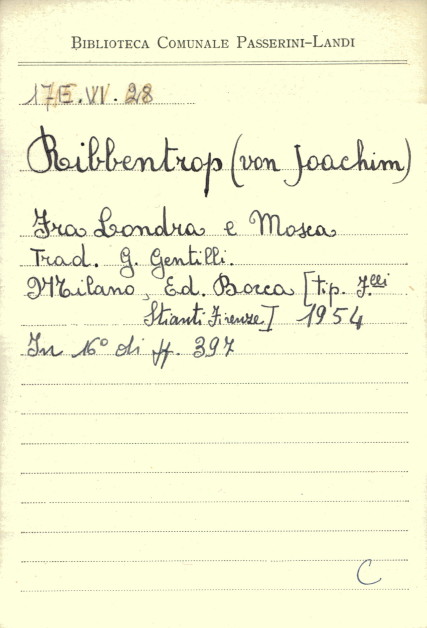 BIBLIOTECA COMUNALE PASSERINI-LANDI
17E.VI.28
Ribbentrop (von Joachim)
Fra Londra e Mosca
Trad. G. Gentilli.
Milano, Ed. Bocca [tip. F.lli
Stianti Firenze] 1954
In 16° di ff. 397
C